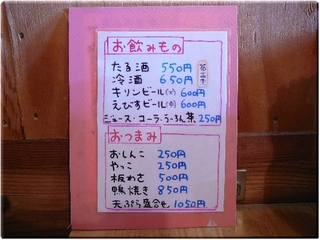 お飲みもの
たる酒 550円
冷酒 650円
キリンビール(大) 600円
えびすビール(中) 600円
ジュース・コーラ・うーろん茶 250円
おつまみ
おしんこ 250円
やっこ 250円
板わさ 500円
鴨焼き 850円
天ぷら盛合せ 1050円